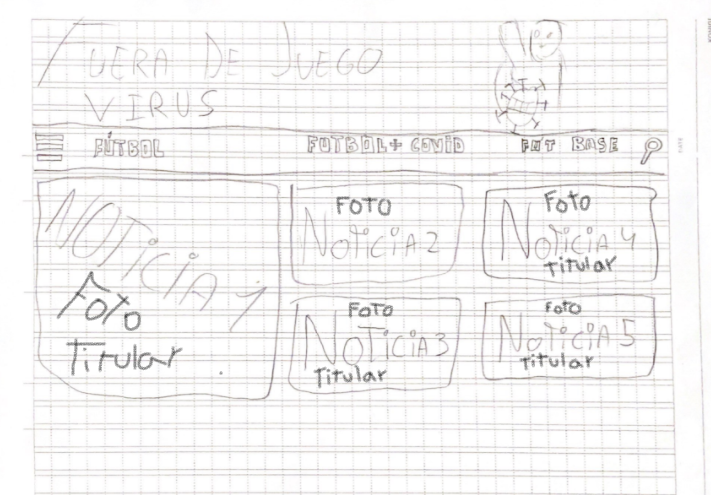 FUERA DE JUEGO
VIRUS
FÚTBOL FUTBOL+ COVID FUT BASE
NOTICIA 1
FOTO
Titular
FOTO
NOTICIA 2
FOTO
NOTICIA 3
Titular
FOTO
NOTICIA 4
Titular
FOTO
NOTICIA 5
Titular